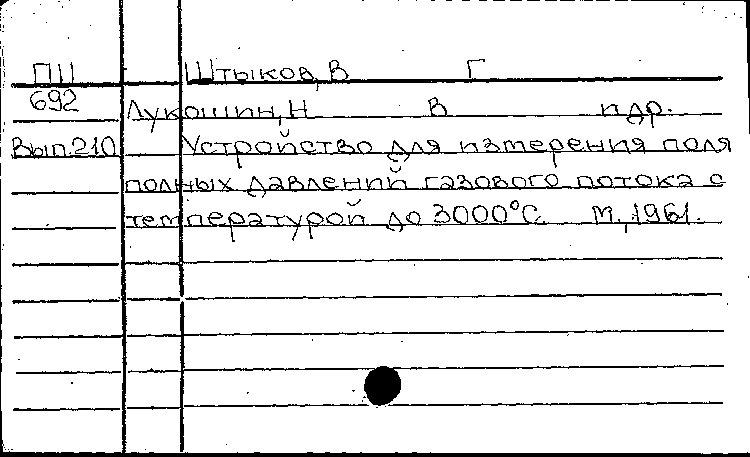 ПШ Штыков, В Г
692 Лукошин, Н В и др.
Вып.210 Устройство для измерения поля
полных давлений газового потока с
температурой до 3000°С. М., 1961.